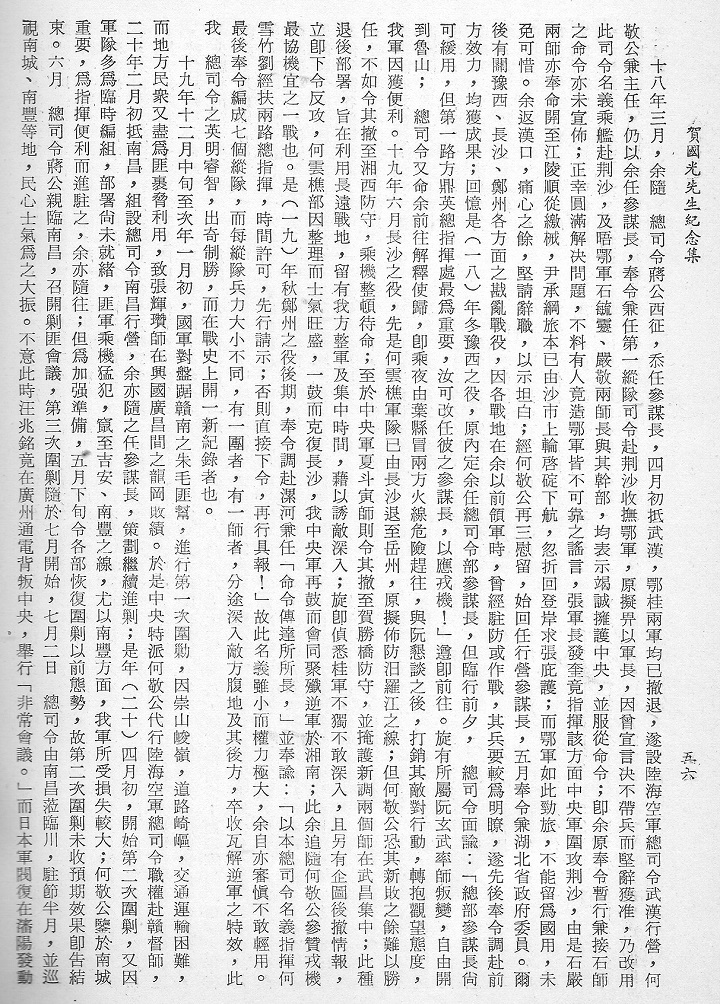 賀國光先生紀念集
五六
十八年三月，余隨　總司令蔣公西征，忝任參謀長，四月初抵武漢，鄂桂兩軍均已撤退，遂設陸海空軍總司令武漢行營，何
敬公兼主任，仍以余任參謀長，奉令兼任第一縱隊司令赴荆沙收撫鄂軍，原擬畀以軍長，因曾宣言決不帶兵而堅辭獲准，乃改用
此司令名義乘艦赴荆沙，及晤鄂軍石毓靈、嚴敬兩師長與其幹部，均表示竭誠擁護中央，並服從命令；卽余原奉令暫行兼接石師
之命令亦未宣佈；正幸圓滿解決問題，不料有人竟造鄂軍皆不可靠之謠言，張軍長發奎竟指揮該方面中央軍圍攻荆沙，由是石嚴
兩師亦奉命開至江陵順從繳械，尹承綱旅本已由沙市上輪啓碇下航，忽折回登岸求張庇護；而鄂軍如此勁旅，不能留爲國用，未
免可惜。余返漢口，痛心之餘，堅請辭職，以示坦白；經何敬公再三慰留，始回任行營參謀長，五月奉令兼湖北省政府委員。爾
後有關豫西、長沙、鄭州各方面之戡亂戰役，因各戰地在余以前領軍時，曾經駐防或作戰，其兵要較爲明瞭，遂先後奉令調赴前
方效力，均獲成果；回憶是（一八）年冬豫西之役，原內定余任總司令部參謀長，但臨行前夕，　總司令面諭：「總部參謀長尙
可緩用，但第一路方鼎英總指揮處最爲重要，汝可改任彼之參謀長，以應戎機！」遵卽前往。旋有所屬阮玄武率師叛變，自由開
到魯山；　總司令又命余前往解釋使歸，卽乘夜由葉縣冒兩方火線危險趕往，與阮懇談之後，打銷其敵對行動，轉抱觀望態度，
我軍因獲便利。十九年六月長沙之役，先是何雲樵軍隊已由長沙退至岳州，原擬佈防汨羅江之線；但何敬公恐其新敗之餘難以勝
任，不如令其撤至湘西防守，乘機整頓待命；至於中央軍夏斗寅師則令其撤至賀勝橋防守，並掩護新調兩個師在武昌集中；此種
退後部署，旨在利用長遠戰地，留有我方整軍及集中時間，藉以誘敵深入；旋卽偵悉桂軍不獨不敢深入，且另有企圖後撤情報，
立卽下令反攻，何雲樵部因整理而士氣旺盛，一鼓而克復長沙，我中央軍再鼓而會同聚殲逆軍於湘南；此余追隨何敬公參贊戎機
最協機宜之一戰也。是（一九）年秋鄭州之役後期，奉令調赴漯河兼任「命令傳達所所長，」並奉諭：「以本總司令名義指揮何
雪竹劉經扶兩路總指揮，時間許可，先行請示；否則直接下令，再行具報！」故此名義雖小而權力極大，余自亦審愼不敢輕用。
最後奉令編成七個縱隊，而每縱隊兵力大小不同，有一團者，有一師者，分途深入敵方腹地及其後方，卒收瓦解逆軍之特效，此
我　總司令之英明睿智，出奇制勝，而在戰史上開一新紀錄者也。
十九年十二月中旬至次年一月初，國軍對盤踞贛南之朱毛匪幫，進行第一次圍勦，因崇山峻嶺，道路崎嶇，交通運輸困難，
而地方民衆又盡爲匪裹脅利用，致張輝瓚師在興國廣昌間之龍岡敗績。於是中央特派何敬公代行陸海空軍總司令職權赴贛督師，
二十年二月初抵南昌，組設總司令南昌行營，余亦隨之任參謀長，策劃繼續進剿；是年（二十）四月初，開始第二次圍剿，又因
軍隊多爲臨時編組，部署尙未就緖，匪軍乘機猛犯，竄至吉安、南豐之線，尤以南豐方面，我軍所受損失較大；何敬公鑒於南城
重要，爲指揮便利而進駐之，余亦隨往；但爲加强準備，五月下旬令各部恢復圍剿以前態勢，故第二次圍剿未收預期效果卽告結
束。六月　總司令蔣公親臨南昌，召開剿匪會議，第三次圍剿隨於七月開始，七月二日　總司令由南昌蒞臨川，駐節半月，並巡
視南城、南豐等地，民心士氣爲之大振。不意此時汪兆銘竟在廣州通電背叛中央，舉行「非常會議。」而日本軍閥復在瀋陽發動